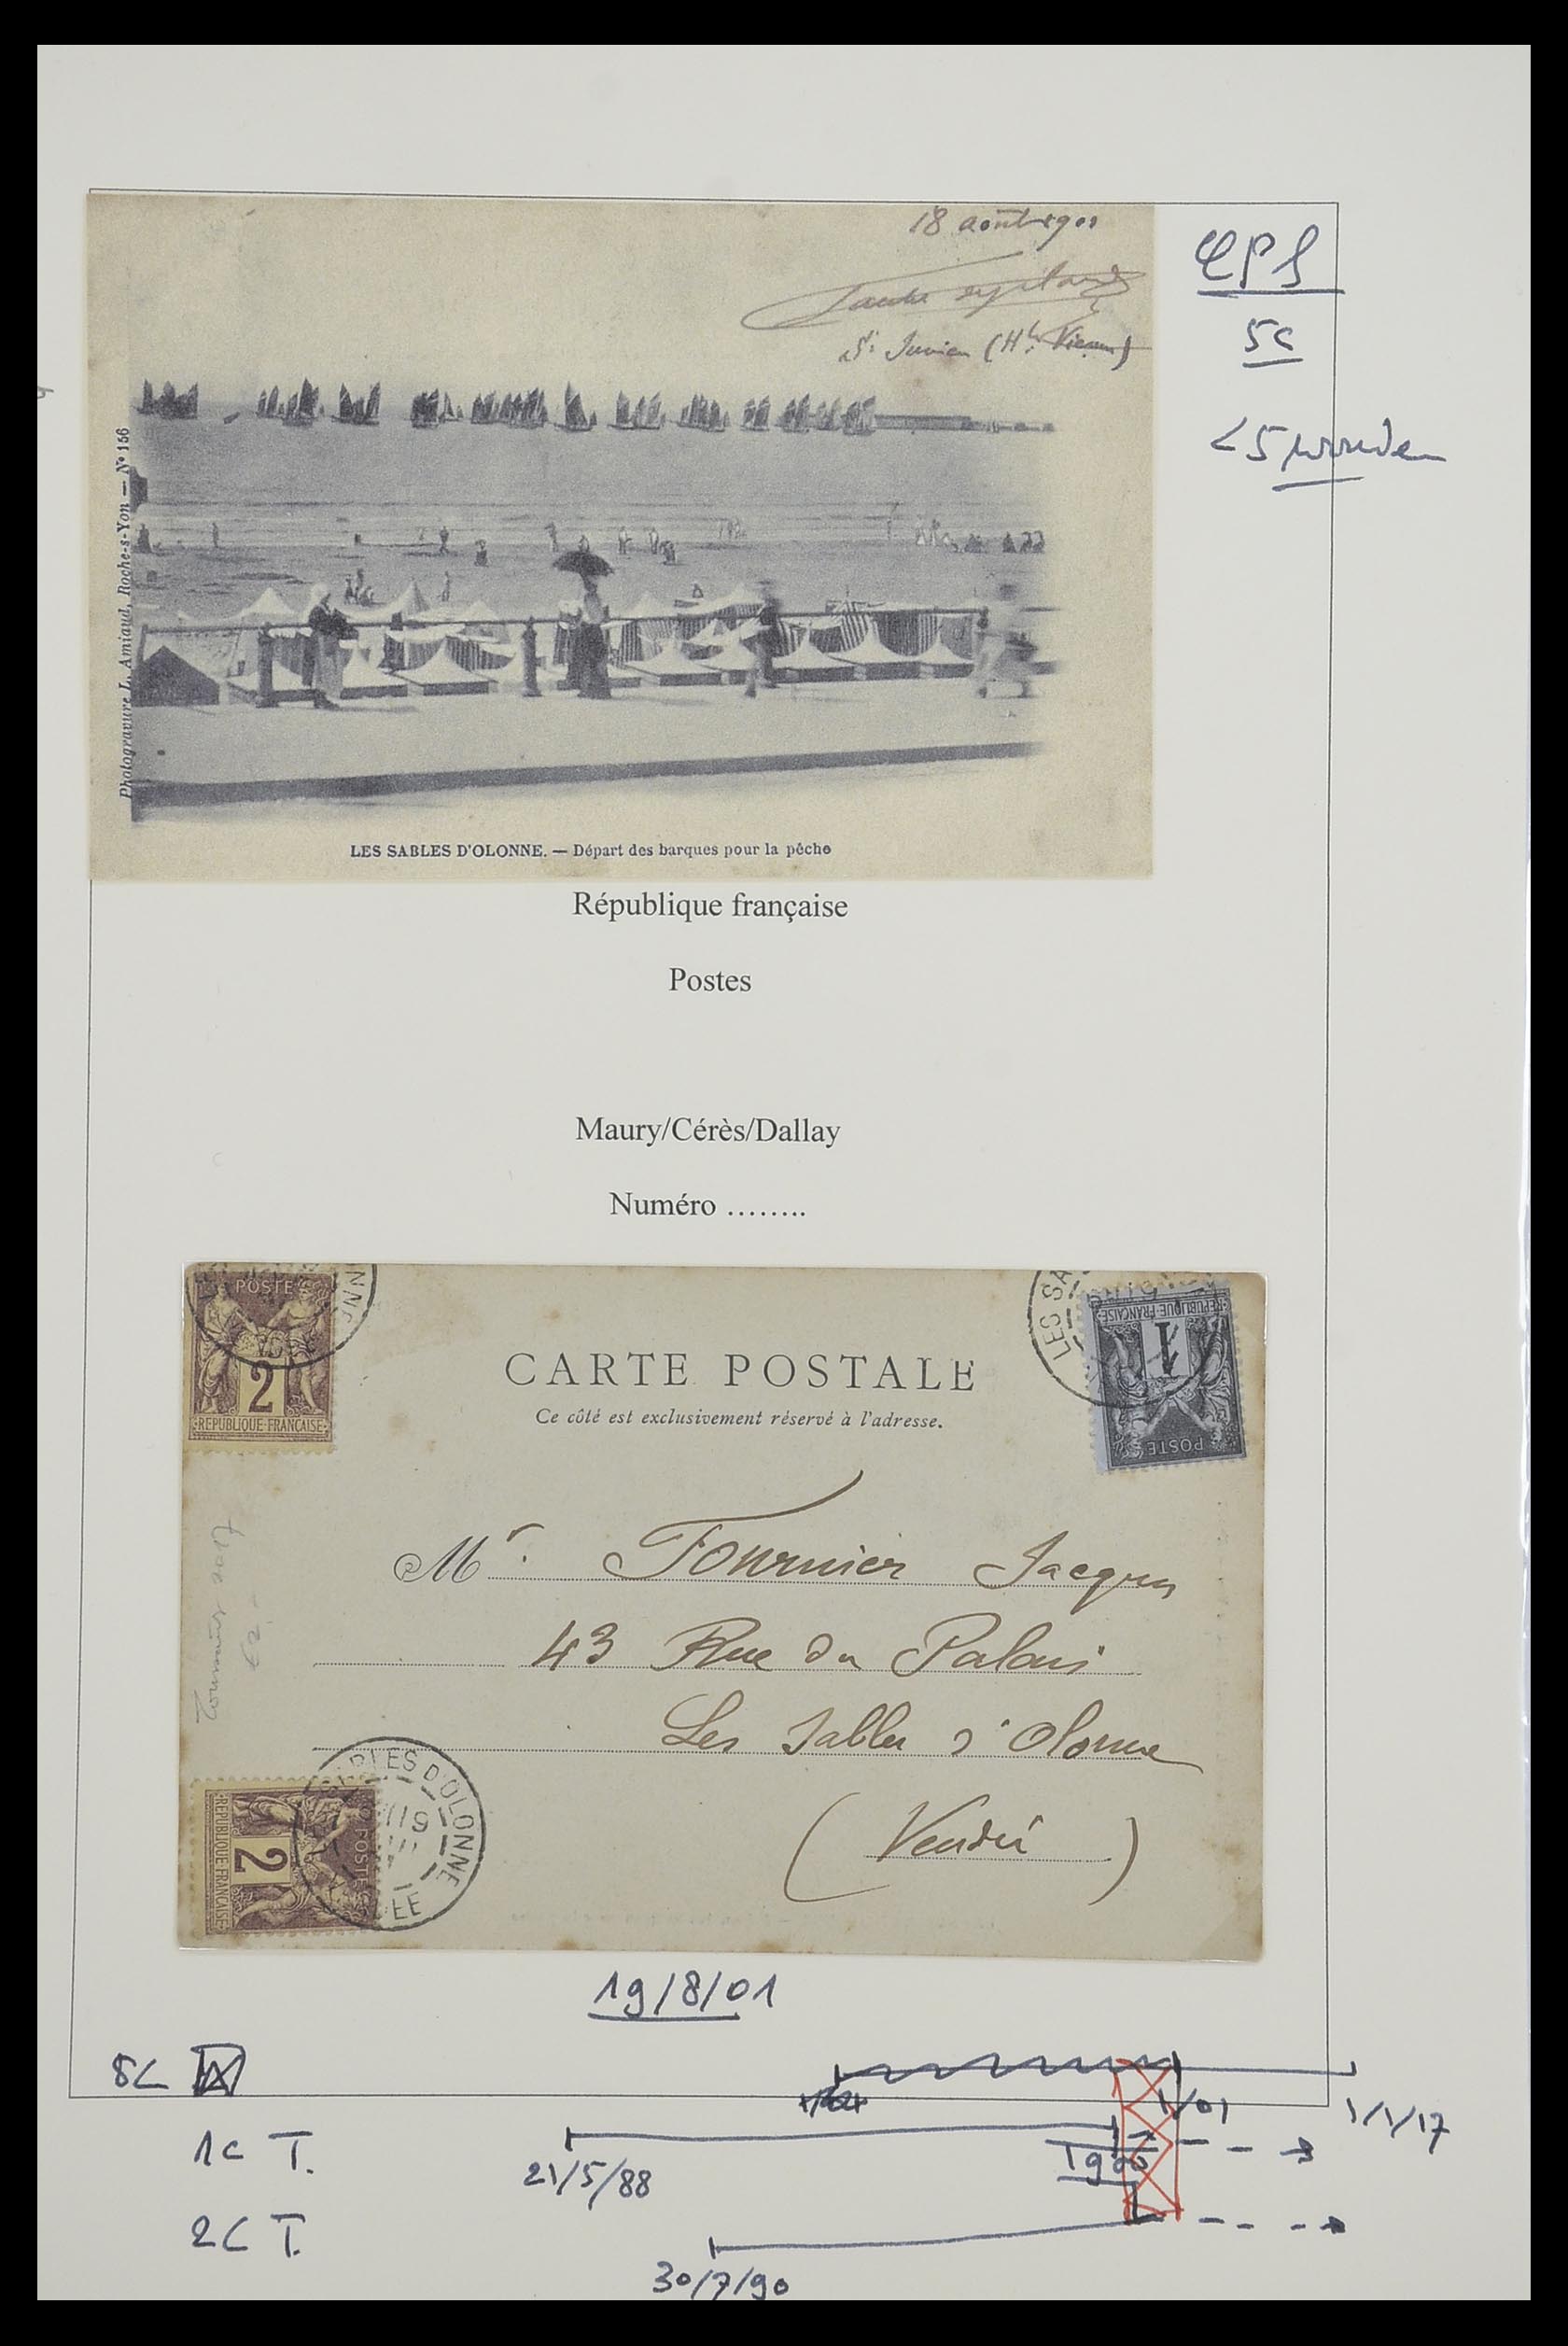 18 août 1901
St Junien (Hte Vienne)
Photogravure L. Amiaud, Roche-s-Yon — No 156
LES SABLES D'OLONNE. — Départ des barques pour la pêche
CPS
5c
<5
République française
Postes
Maury/Cérès/Dallay
Numéro ........
POSTE
2
REPUBLIQUE FRANÇAISE
LES SA
REPUBLIQUE FRANÇAISE
1
POSTE
CARTE POSTALE
Ce côté est exclusivement réservé à l'adresse.
Mr. Fournier Jacques
43 Rue du Palais
Les Sables d'Olonne
(Vendée)
SABLES D'OLONNE
REPUBLIQUE FRANÇAISE
2
POSTE
19/8/01
5c
1/01
1/1/17
1c T.
21/5/88
1900
2c T.
30/7/90